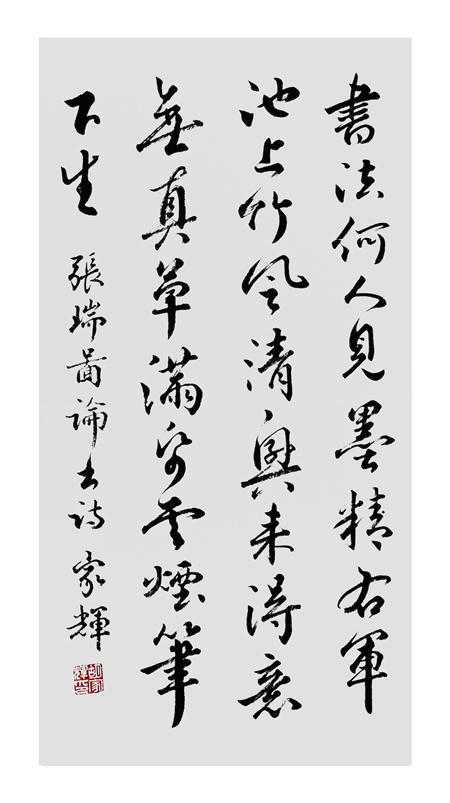 書法何人見墨精右軍
池上竹風清興来得意
無真草滿帋雲煙筆
下生
張瑞圖論書詩 家輝